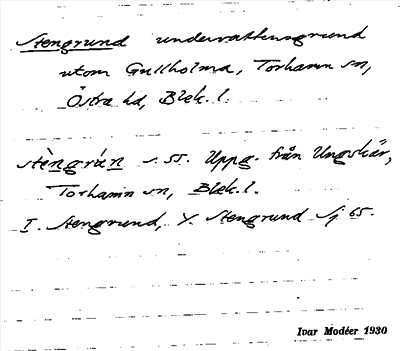 Stengrund undervattensgrund
utom Gullholma, Torhamn sn,
Östra hd, Blek. l.
stèngrún s. 55. Uppg. från Ungskär,
Torhamn sn, Blek. l.
I. Stengrund, Y. Stengrund Sj 65.
Ivar Modéer 1930